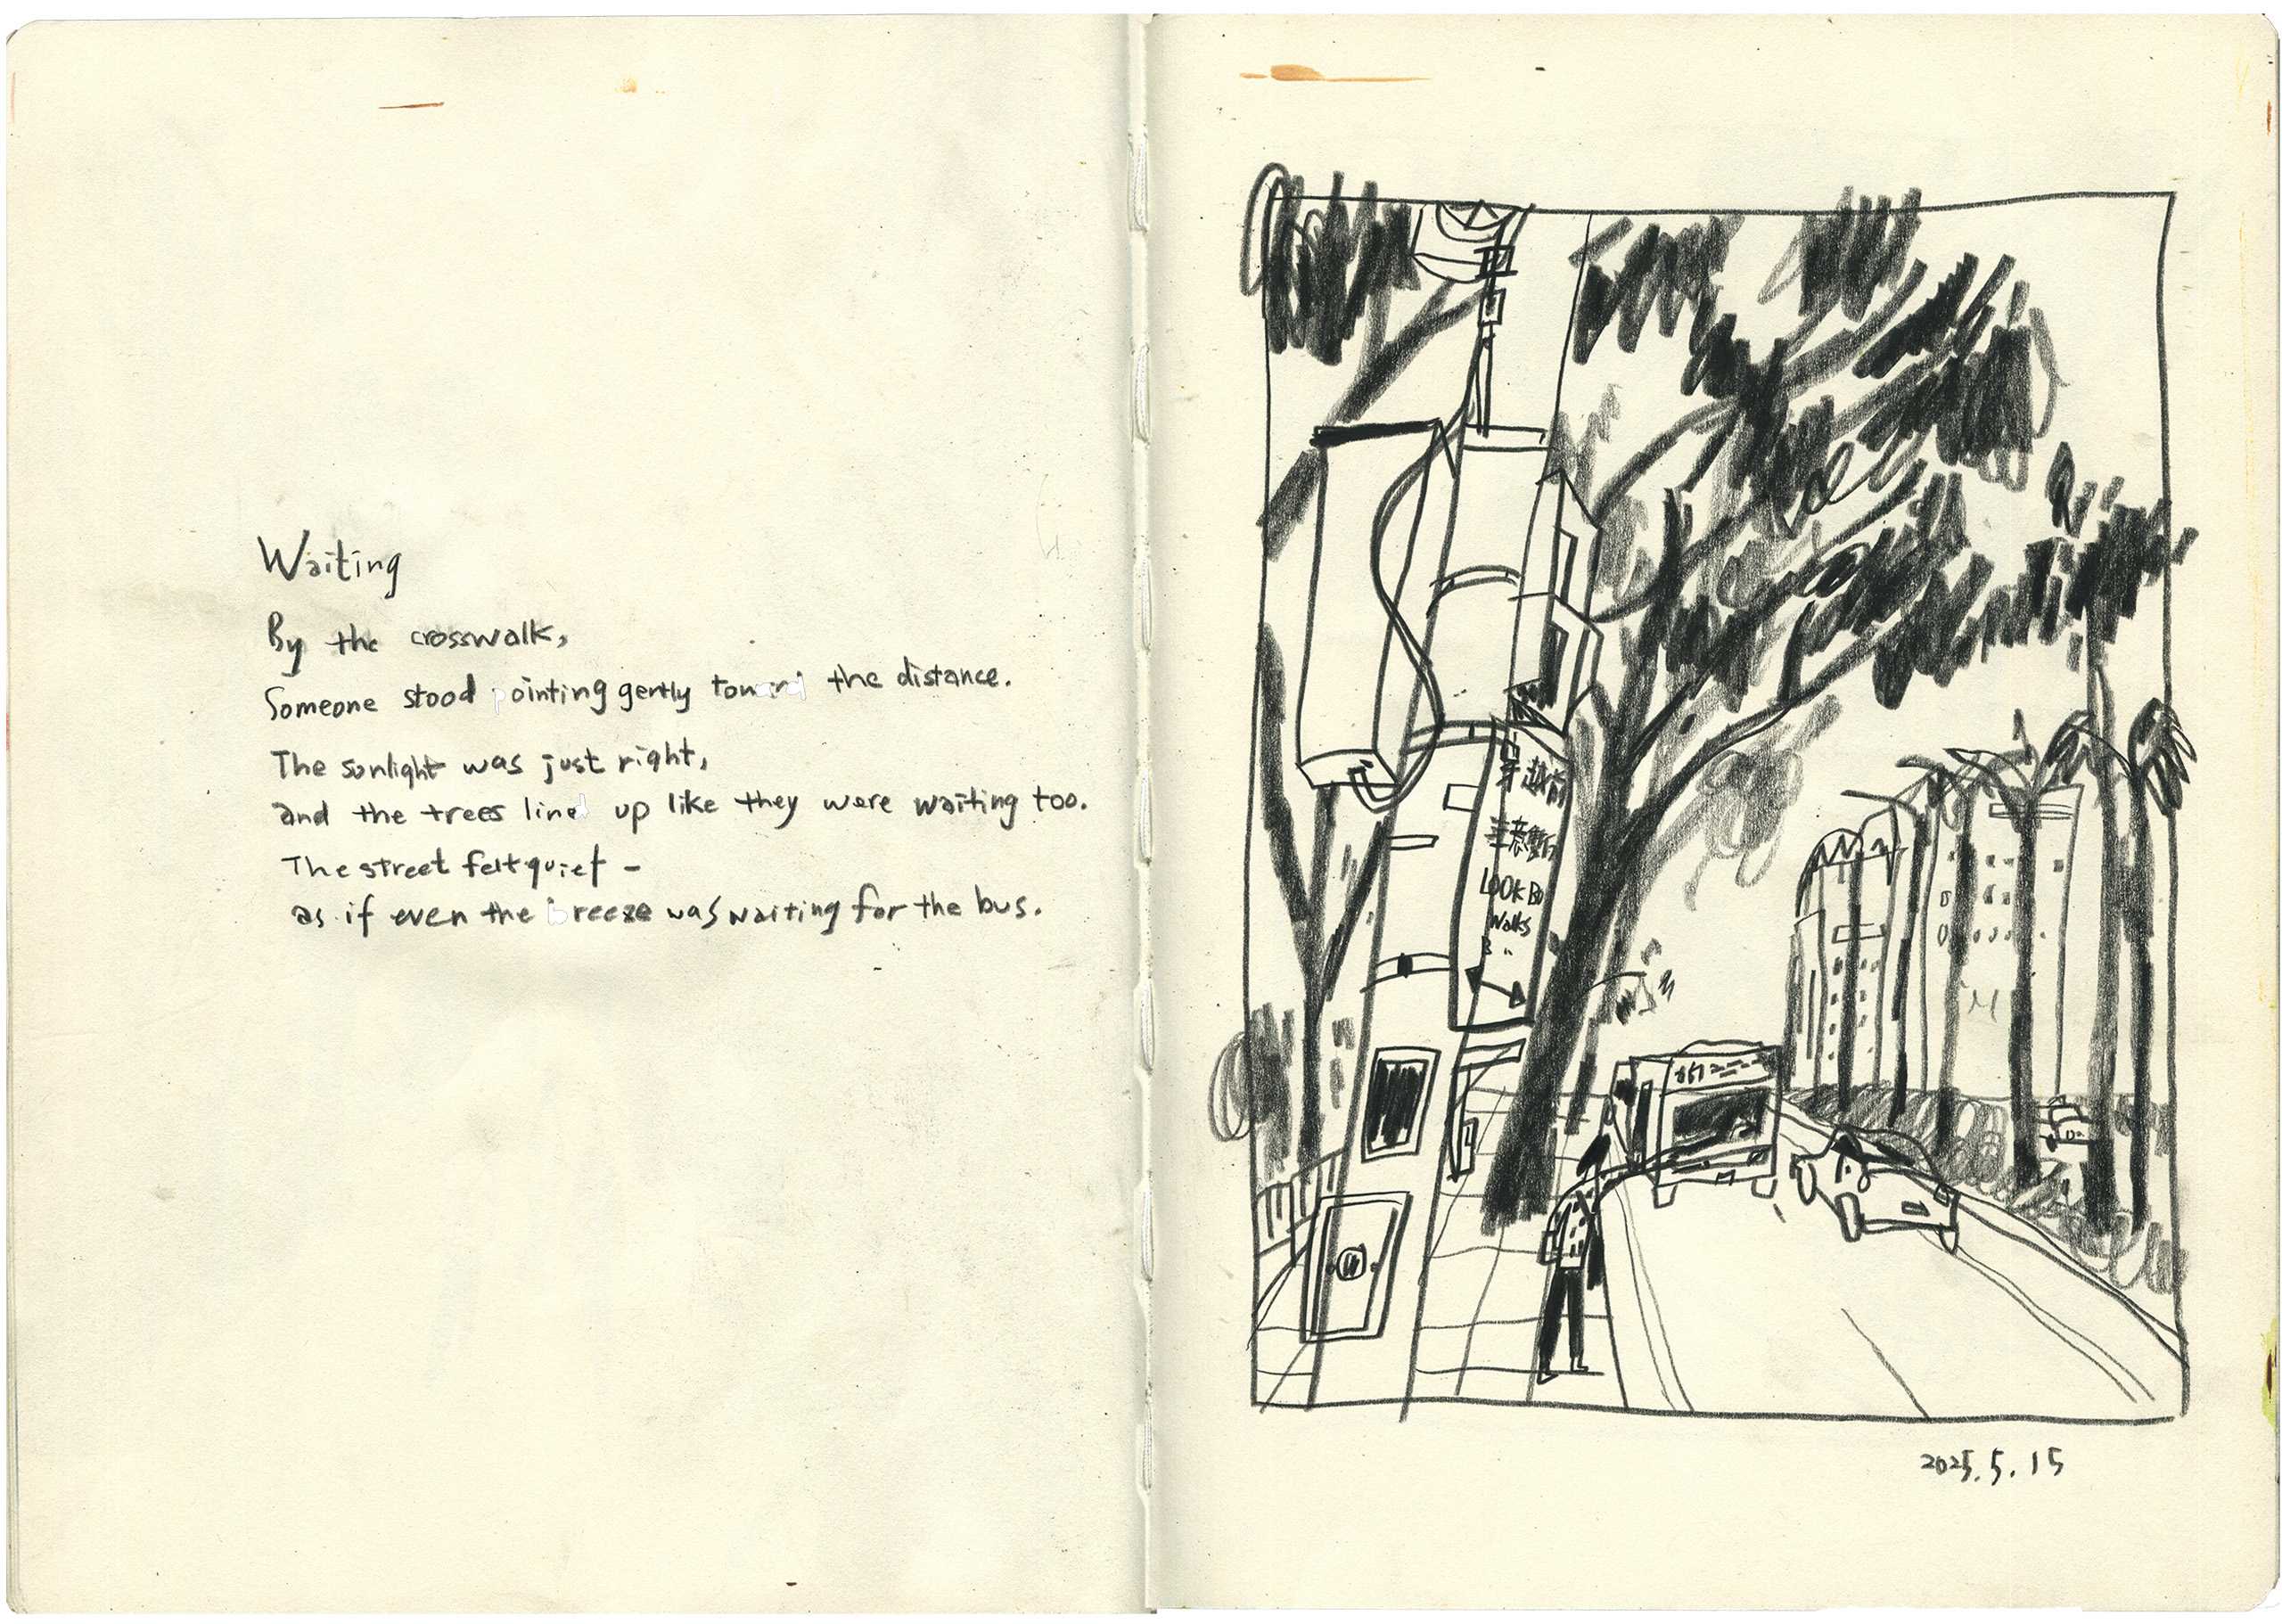 Waiting
By the crosswalk,
Someone stood pointing gently toward the distance.
The sunlight was just right,
and the trees lined up like they were waiting too.
The street felt quiet –
as if even the breeze was waiting for the bus.
穿越前
LOOK BO
Walks
2025.5.15